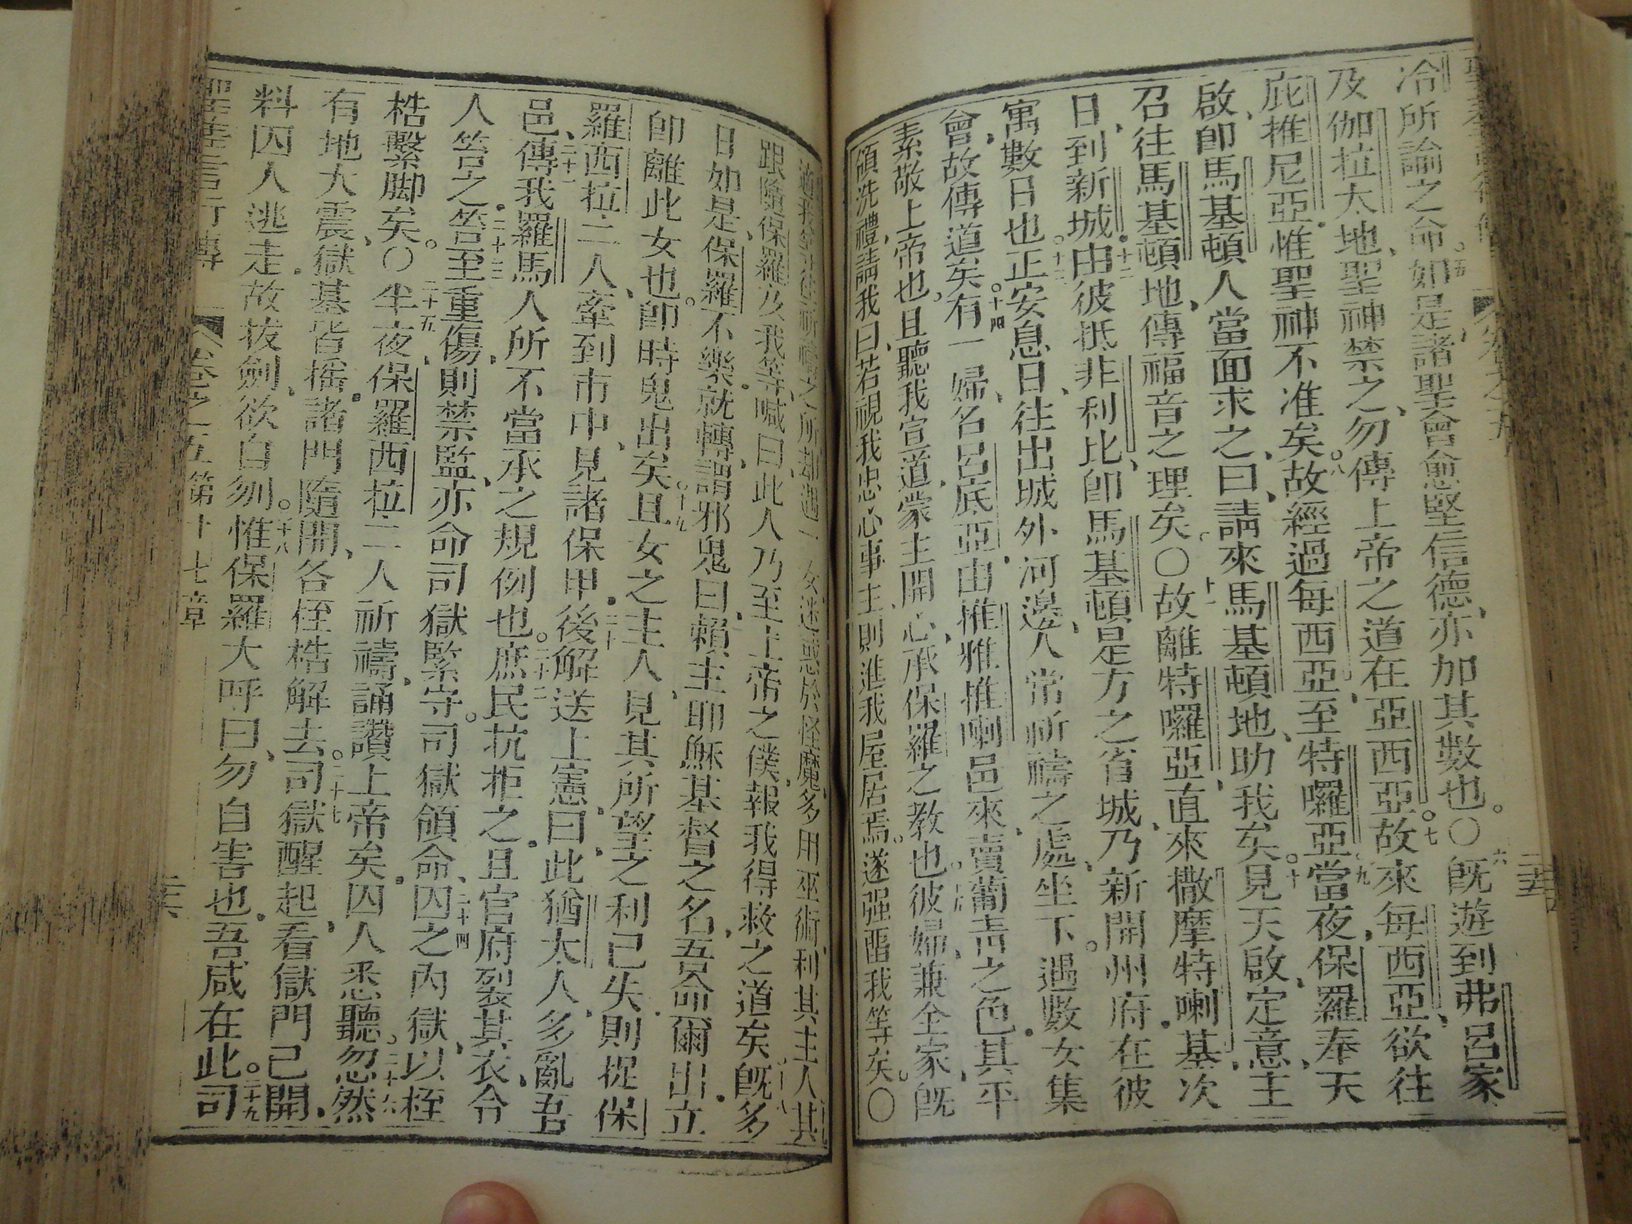 冷所論之命。如是、諸聖會愈堅信德、亦加其數也。〇六旣遊到弗呂家
及伽拉太地、聖神禁之、勿傳上帝之道在亞西亞。七故來每西亞、欲往
庇推尼亞、惟聖神不准矣。八故經過每西亞、至特囉亞。九當夜、保羅奉天
啟、卽馬基頓人當面求之、曰、請來馬基頓地、助我矣。十見天啟、定意、主
召往馬基頓地、傳福音之理矣。〇十一故離特囉亞、直來撒摩特喇基、次
日、到新城。十二由彼抵非利比、卽馬基頓是方之省城、乃新開州府。在彼
寓數日也。十三正安息日、往出城外河邊、人常祈禱之處、坐下。遇數女集
會、故傳道矣。十四有一婦、名呂底亞、由推雅推喇邑來、賣葡青之色。其平
素敬上帝也、且聽我宣道、蒙主開心、承保羅之教也。彼婦、兼全家、旣
領洗禮、請我曰、若視我忠心事主、則進我屋居焉。遂强畱我等矣。〇
一女迷惑於怪魔、多用巫術、利其主人。其
跟隨保羅及我等、喊曰、此人乃至上帝之僕、報我得救之道矣。十八旣多
日如是、保羅不樂、就轉、謂邪鬼曰、賴主耶穌基督之名、吾命爾出、立
卽離此女也。卽時鬼出矣。十九且女之主人、見其所望之利已失、則捉保
羅西拉二人、牽到市中、見諸保甲。二十後解送上憲、曰、此猶太人、多亂吾
邑、二十一傳我羅馬人所不當承之規例也。二十二庶民抗拒之。且官府裂其衣、令
人笞之。二十三笞至重傷、則禁監、亦命司獄緊守。司獄領命、二十四囚之內獄、以桎
梏繫脚矣。〇二十五半夜保羅西拉二人祈禱、誦讚上帝矣。囚人悉聽。二十六忽然
有地大震、獄基皆搖、諸門隨開、各桎梏解去。二十七司獄醒起、看獄門已開、
料囚人逃走。故拔劍、欲自刎。二十八惟保羅大呼曰、勿自害也。吾咸在此。二十九司
聖差言行傳 卷之五 第十七章